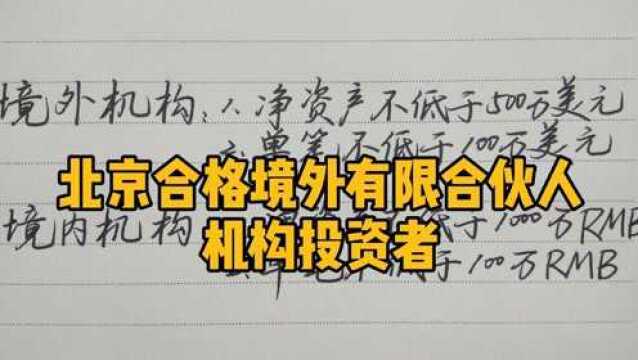 境外机构：1、净资产不低于500万美元
单笔不低于100万美元
北京合格境外有限合伙人
境内机构 低于1000万RMB
机构投资者
低于100万RMB